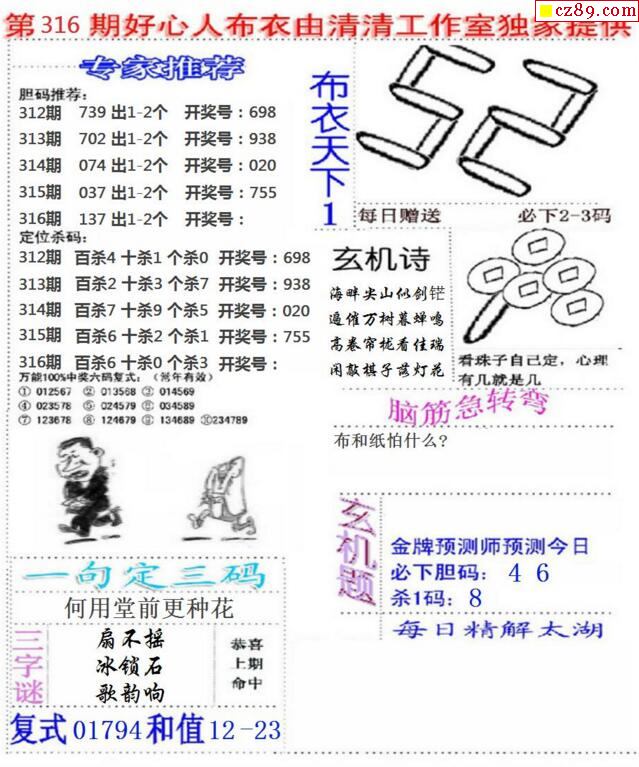 cz89.com
第316期好心人布衣由清清工作室独家提供
专家推荐
胆码推荐:
312期 739 出1-2个 开奖号:698
313期 702 出1-2个 开奖号:938
314期 074 出1-2个 开奖号:020
315期 037 出1-2个 开奖号:755
316期 137 出1-2个 开奖号:
定位杀码:
312期 百杀4 十杀1 个杀0 开奖号:698
313期 百杀2 十杀3 个杀7 开奖号:938
314期 百杀7 十杀9 个杀5 开奖号:020
315期 百杀6 十杀2 个杀1 开奖号:755
316期 百杀6 十杀0 个杀3 开奖号:
万能100%中奖六码复式:(常年有效)
① 012567 ② 013568 ③ 014569
④ 023578 ⑤ 024579 ⑥ 034589
⑦ 123678 ⑧ 124679 ⑨ 134689 ⑩234789
布衣天下1
52
每日赠送 必下2-3码
玄机诗
海畔尖山似剑铓
遍催万树暮蝉鸣
高卷帘栊看佳瑞
闲敲棋子落灯花
看珠子自己定,心理
有几就是几
脑筋急转弯
布和纸怕什么?
一句定三码
何用堂前更种花
三字谜
扇不摇
冰锁石
歌韵响
恭喜
上期
命中
玄机题
金牌预测师预测今日
必下胆码: 4 6
杀1码: 8
每日精解太湖
复式01794和值12-23